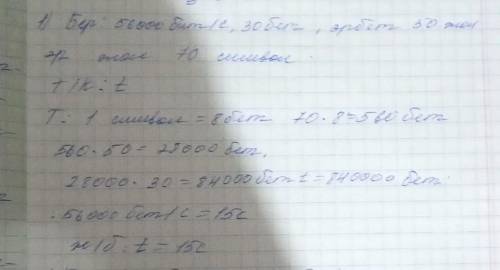 1) Бер: 56000 бит/с, 30 бет, әр бет 50 жол
әр жол 70 символ.
Т/к: t
Т: 1 символ = 8 бит 70·8=560 бит
560·50=28000 бит.
28000·30=84000 бит t=840000 бит:
56000 бит/с=15с
ж/б: t=15с